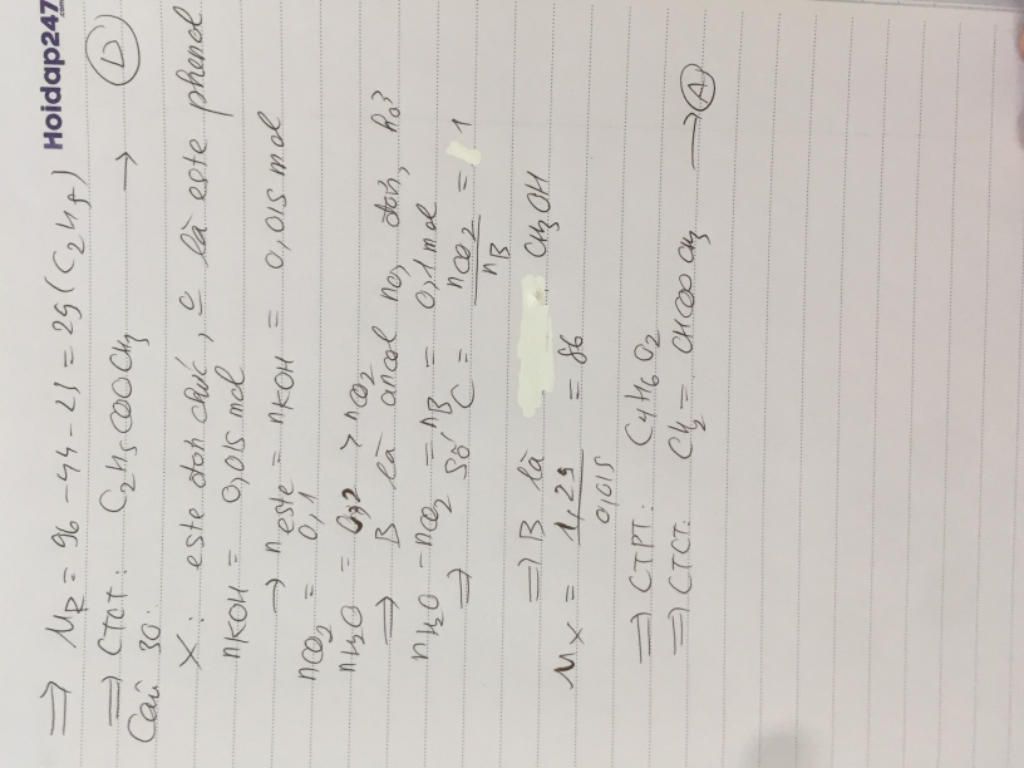 Hoidap247.com
⇒ M_R = 96 - 44 - 23 = 29 (C2H5)
⇒ CTCT: C2H5COOCH3 → (D)
Câu 30:
X: este đơn chức, ko là este phenol
nKOH = 0,015 mol
→ neste = nKOH = 0,015 mol
nCO2 = 0,1
nH2O = 0,2 > nCO2
⇒ B là ancol no, đơn, hở
nH2O - nCO2 = nB = 0,1 mol
⇒ Số C = nCO2 / nB = 1
⇒ B là CH3OH
Mx = 1,29 / 0,015 = 86
⇒ CTPT: C4H6O2
⇒ CTCT: CH2 = CHCOOCH3 → (A)